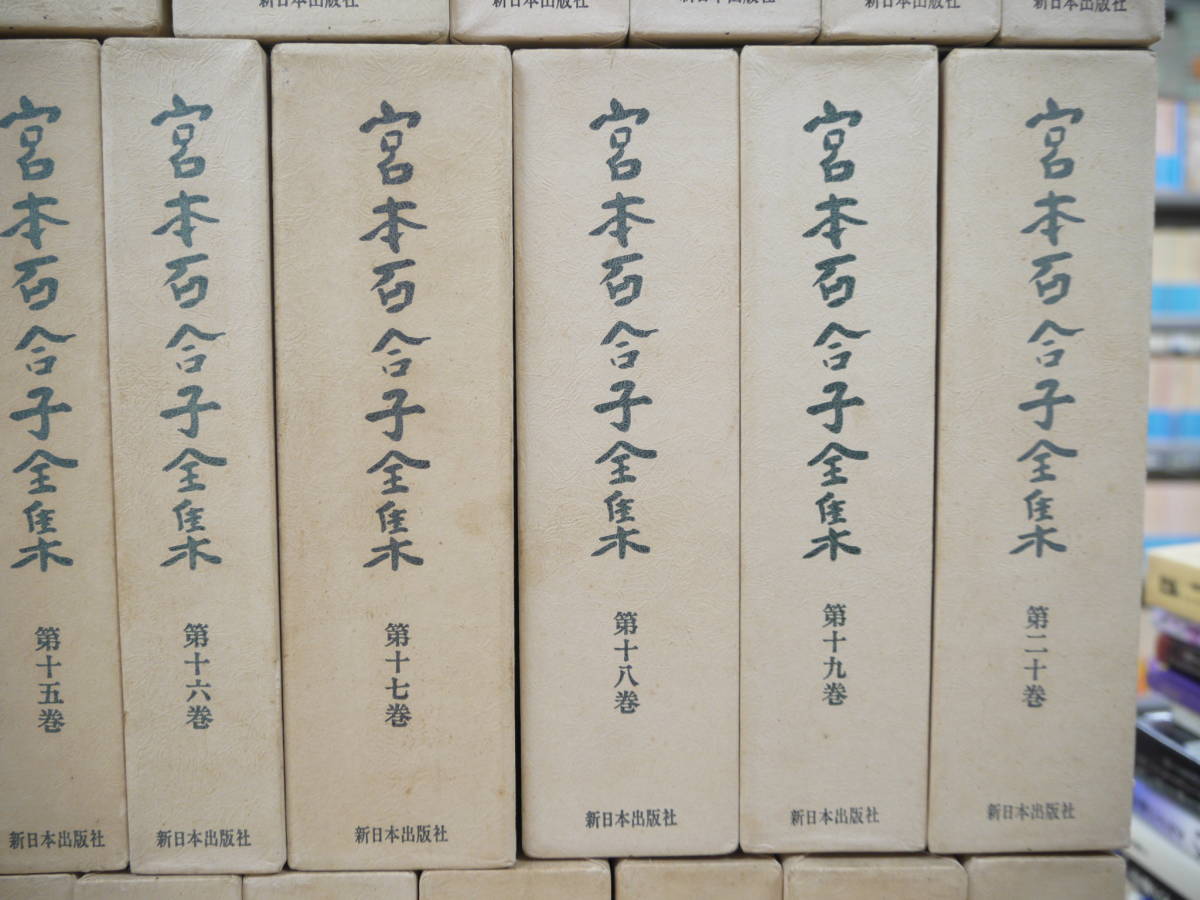 新日本出版社
新日本出版社
新日本出版社
新日本出版社
新日本出版社
宮本百合子全集
第十五巻
新日本出版社
宮本百合子全集
第十六巻
新日本出版社
宮本百合子全集
第十七巻
新日本出版社
宮本百合子全集
第十八巻
新日本出版社
宮本百合子全集
第十九巻
新日本出版社
宮本百合子全集
第二十巻
新日本出版社